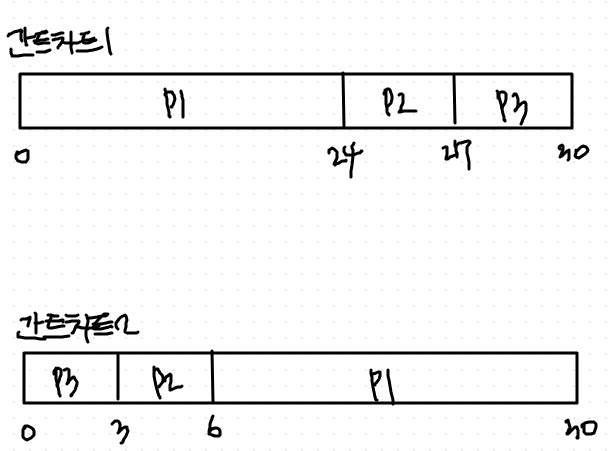 간트차트1
P1 P2 P3
0 24 27 30
간트차트2
P3 P2 P1
0 3 6 30